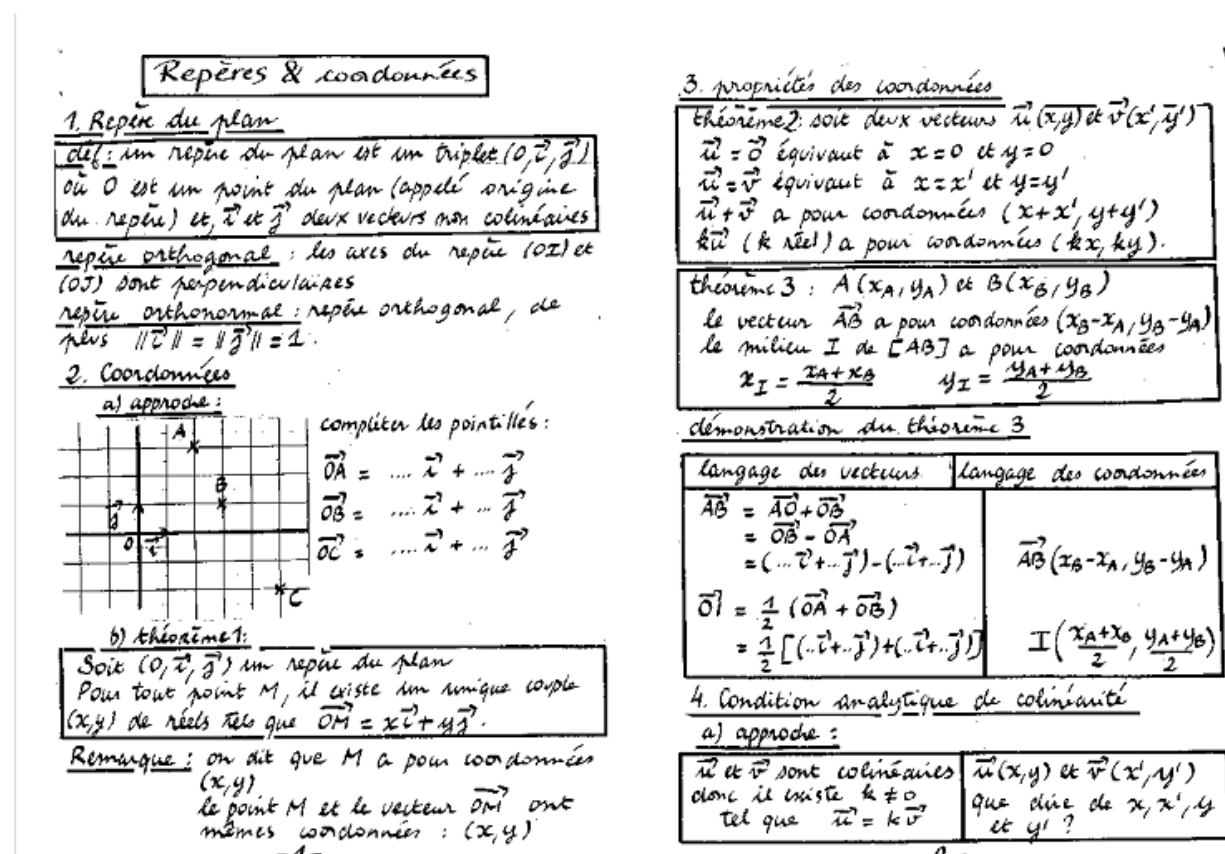 Repères & coordonnées
1. Repère du plan
déf : un repère du plan est un triplet (O, i⃗, j⃗)
où O est un point du plan (appelé origine
du repère) et, i⃗ et j⃗ deux vecteurs non colinéaires
repère orthogonal : les axes du repère (OI) et
(OJ) sont perpendiculaires
repère orthonormal : repère orthogonal, de
plus ||i⃗|| = ||j⃗|| = 1.
2. Coordonnées
a) approche :
A
B
j⃗
O
i⃗
C
compléter les pointillés :
OA⃗ = .... i⃗ + .... j⃗
OB⃗ = .... i⃗ + ... j⃗
OC⃗ = .... i⃗ + ... j⃗
b) théorème 1:
Soit (O, i⃗, j⃗) un repère du plan
Pour tout point M, il existe un unique couple
(x,y) de réels tels que OM⃗ = x i⃗ + y j⃗.
Remarque : on dit que M a pour coordonnées
(x,y)
le point M et le vecteur OM⃗ ont
mêmes coordonnées : (x,y)
-1-
3. propriétés des coordonnées
théorème 2: soit deux vecteurs u⃗(x,y) et v⃗(x',y')
u⃗ = o⃗ équivaut à x = 0 et y = 0
u⃗ = v⃗ équivaut à x = x' et y = y'
u⃗ + v⃗ a pour coordonnées (x+x', y+y')
ku⃗ (k réel) a pour coordonnées (kx, ky).
théorème 3 : A(x_A, y_A) et B(x_B, y_B)
le vecteur AB⃗ a pour coordonnées (x_B-x_A, y_B-y_A)
le milieu I de [AB] a pour coordonnées
x_I = (x_A+x_B)/2 y_I = (y_A+y_B)/2
démonstration du théorème 3
langage des vecteurs | langage des coordonnées
AB⃗ = AO⃗ + OB⃗
= OB⃗ - OA⃗
= (... i⃗ +.. j⃗) - (.. i⃗ +.. j⃗) AB⃗(x_B-x_A, y_B-y_A)
OI⃗ = 1/2 (OA⃗ + OB⃗)
= 1/2 [(.. i⃗ +.. j⃗) + (.. i⃗ +.. j⃗)] I((x_A+x_B)/2, (y_A+y_B)/2)
4. Condition analytique de colinéarité
a) approche :
u⃗ et v⃗ sont colinéaires
donc il existe k ≠ 0
tel que u⃗ = k v⃗
u⃗(x,y) et v⃗(x',y')
que dire de x, x', y
et y' ?